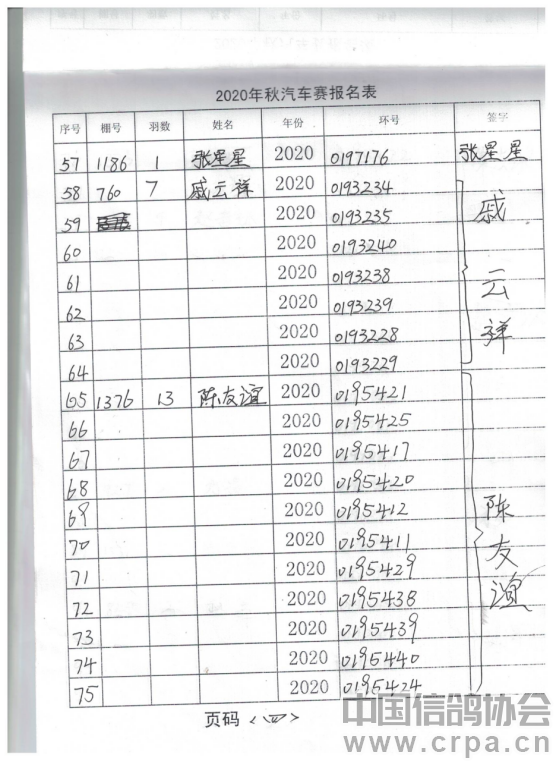 2020年秋汽车赛报名表
序号 棚号 羽数 姓名 年份 环号 签字
57 1186 1 张星星 2020 0197176 张星星
58 760 7 戚云祥 2020 0193234 戚云祥
59 2020 0193235
60 2020 0193240
61 2020 0193238
62 2020 0193239
63 2020 0193228
64 2020 0193229
65 1376 13 陈友谊 2020 0195421 陈友谊
66 2020 0195425
67 2020 0195417
68 2020 0195420
69 2020 0195412
70 2020 0195411
71 2020 0195429
72 2020 0195438
73 2020 0195439
74 2020 0195440
75 2020 0195424
页码 <四>
中国信鸽协会
www.crpa.cn